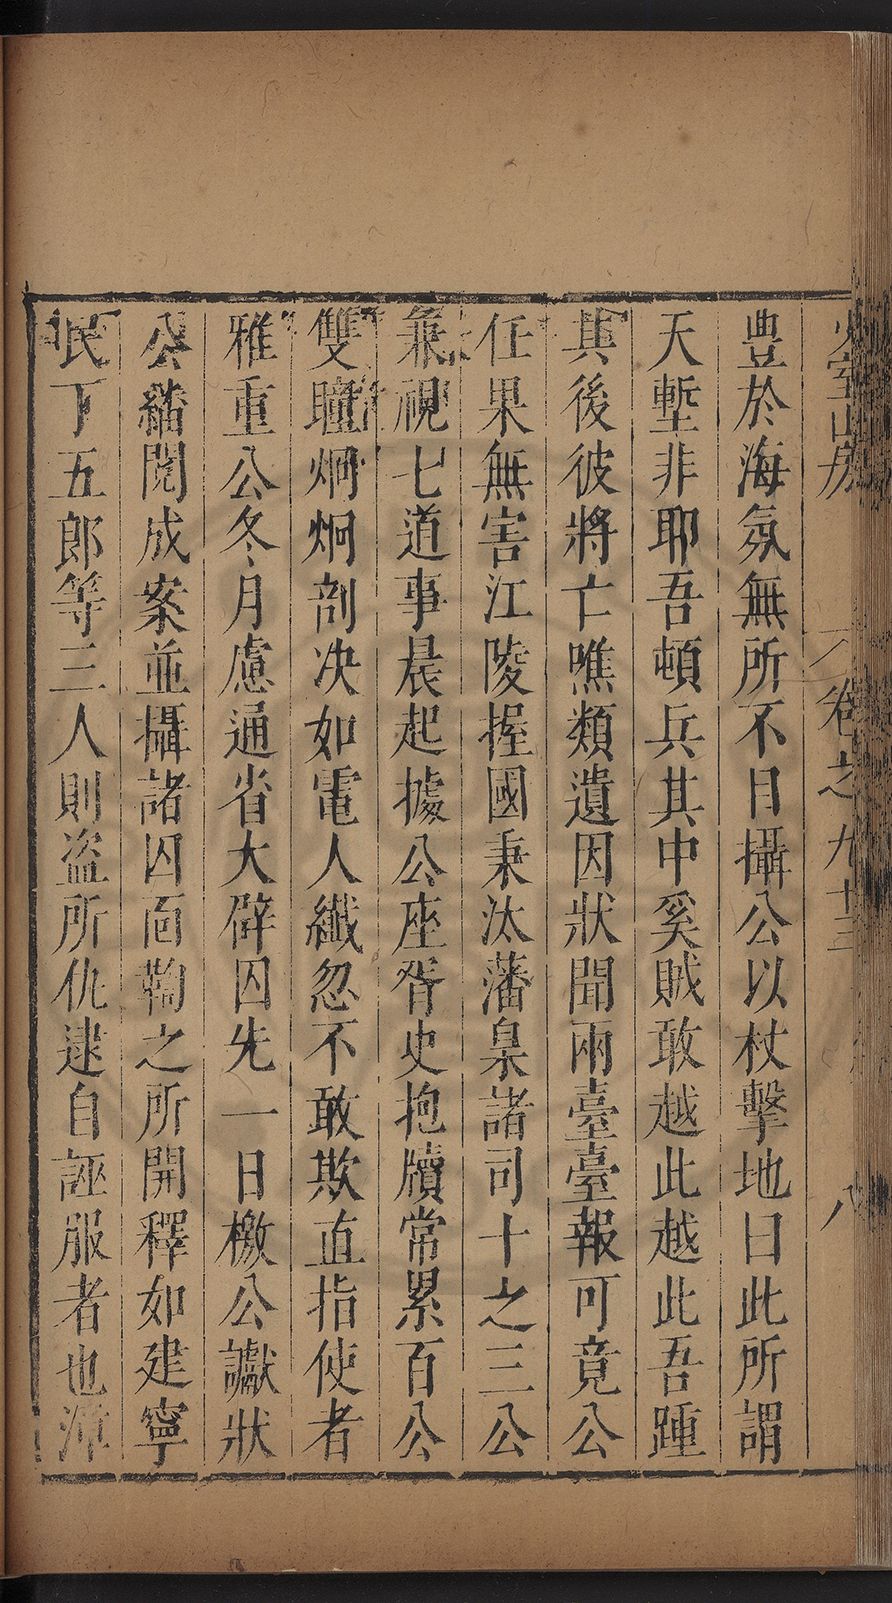 少室山房
卷之九十三
八
豊於海氛無所不目攝公以杖擊地曰此所謂
天塹非耶吾頓兵其中奚賊敢越此越此吾踵
其後彼將亡噍類遺因狀聞兩臺臺報可竟公
任果無害江陵握國秉汰藩臬諸司十之三公
兼視七道事晨起據公座胥史抱牘常累百公
雙瞳炯炯剖决如電人纖忽不敢欺直指使者
雅重公冬月慮通省大辟囚先一日檄公讞狀
公繙閱成案並攝諸囚靣鞫之所開釋如建寧
民丁五郎等三人則盜所仇逮自誣服者也漳